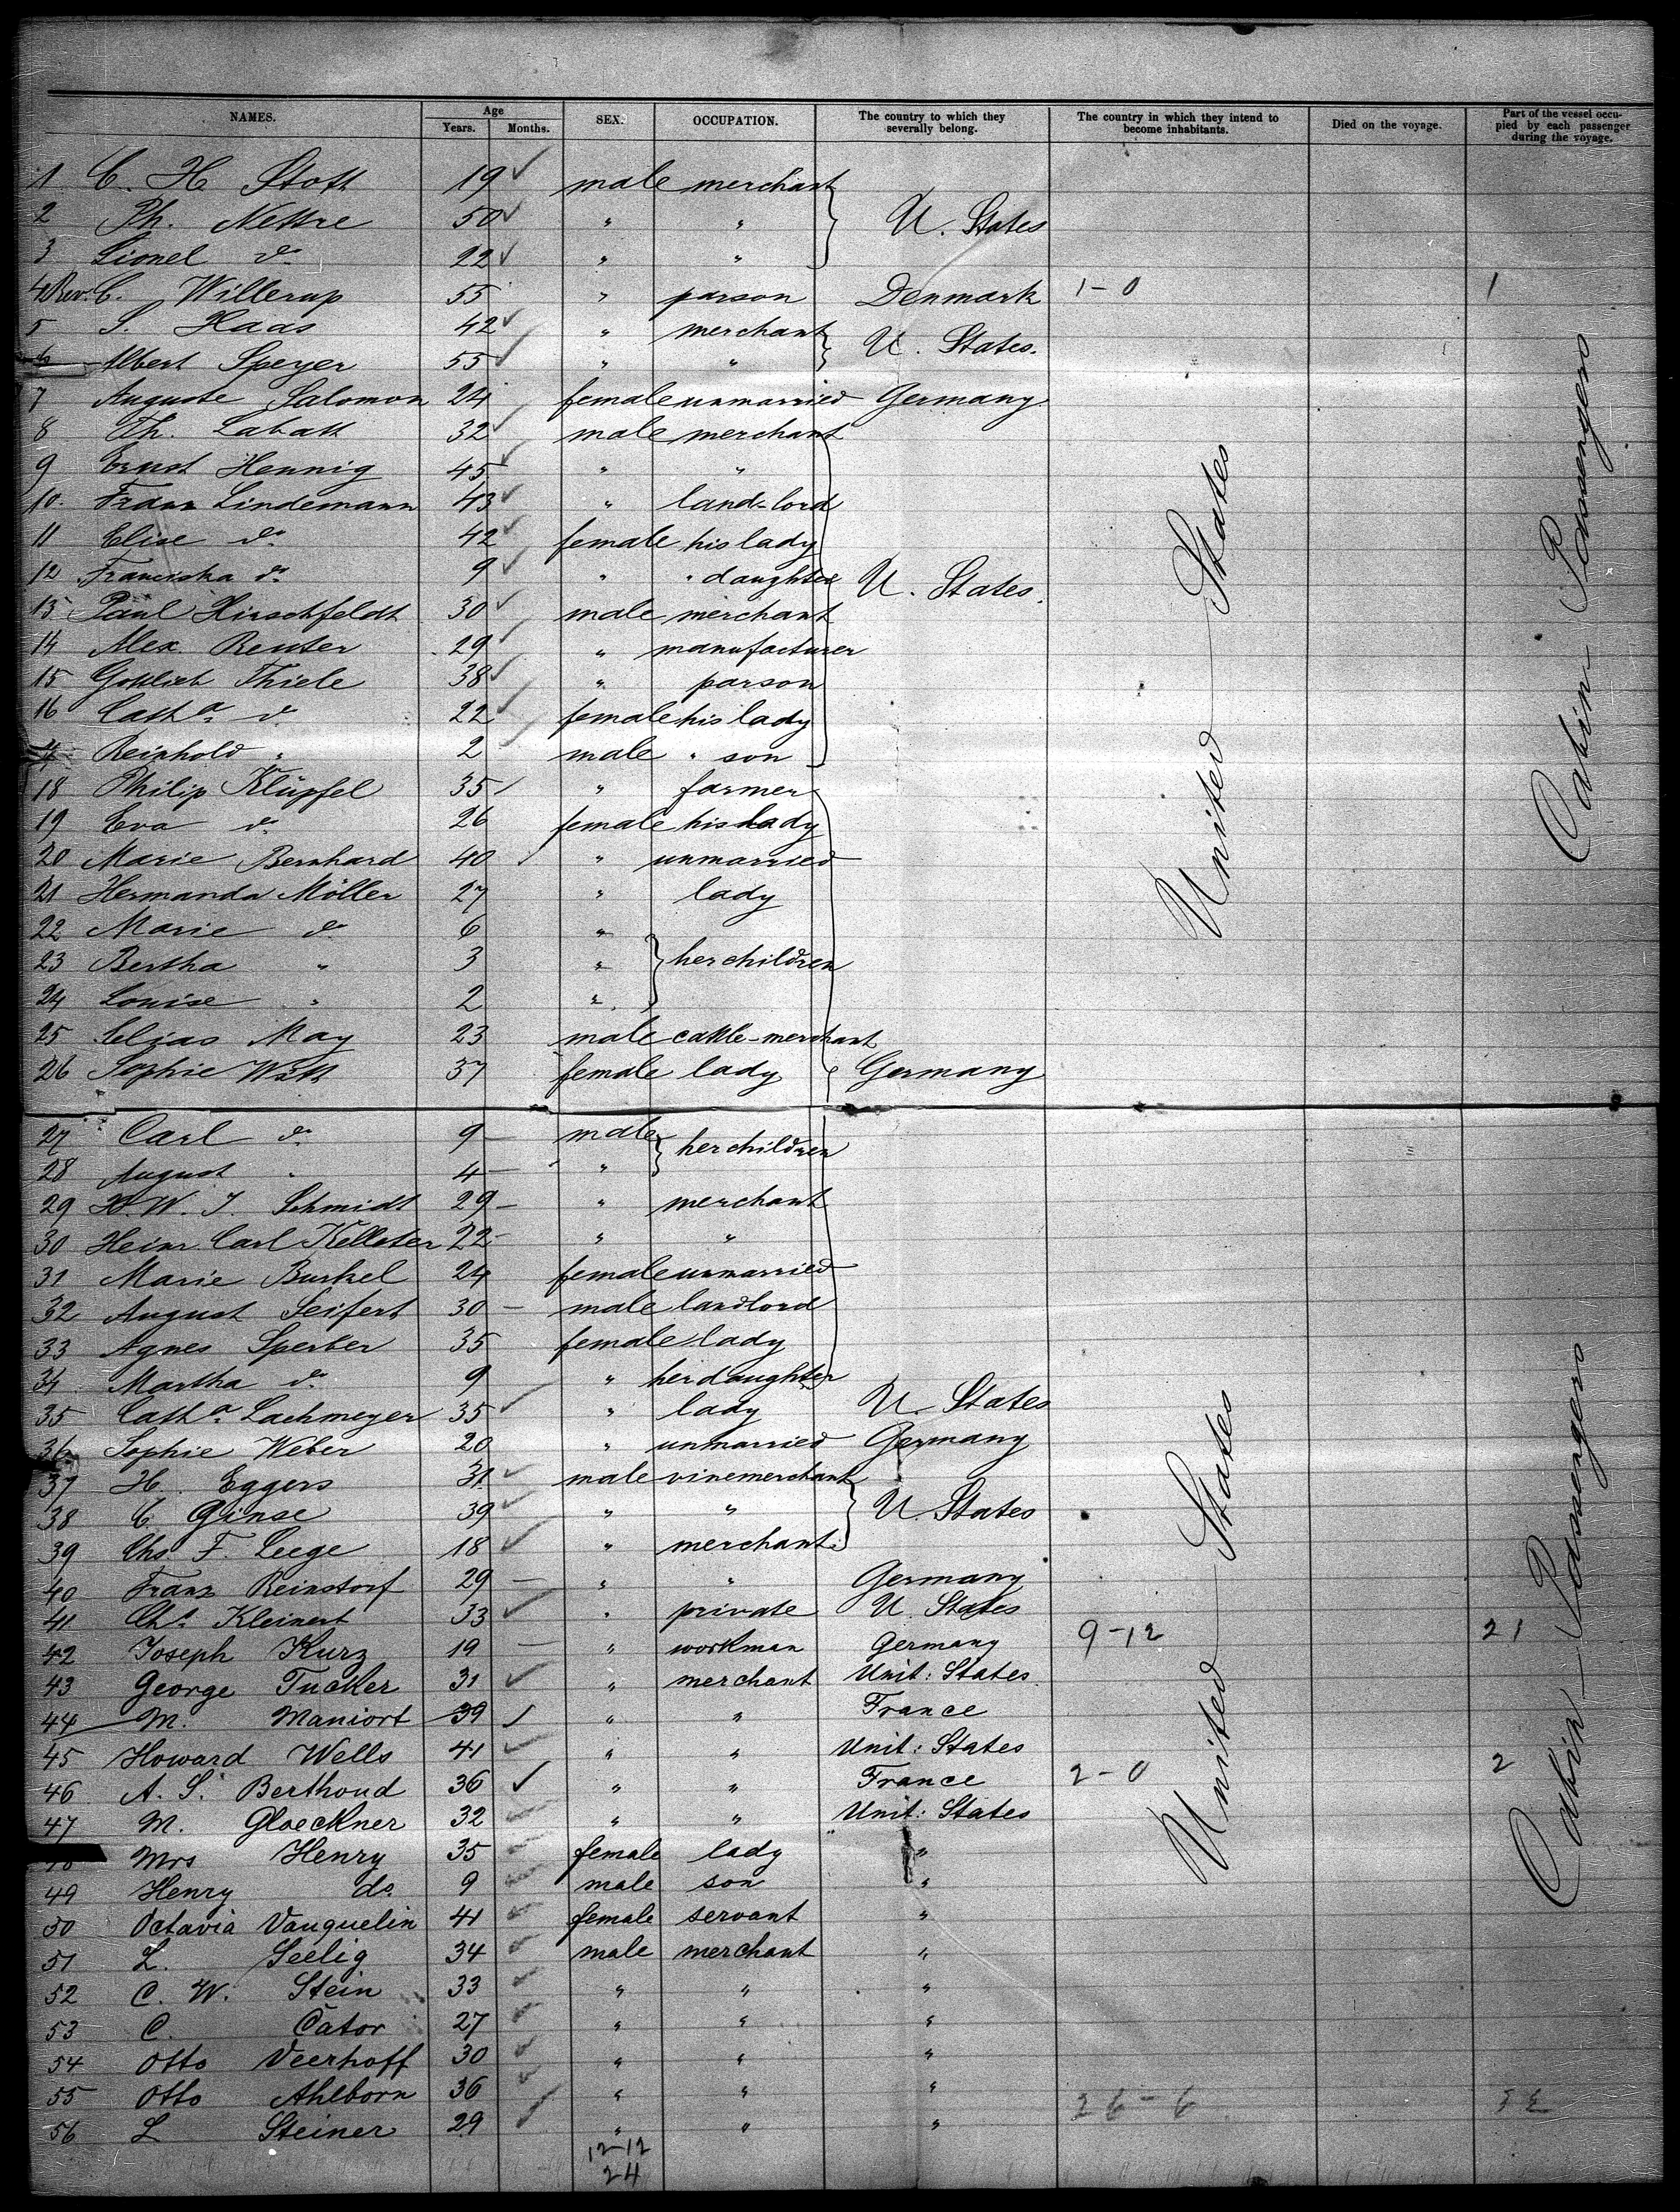 NAMES. Age Years. Months. SEX. OCCUPATION. The country to which they severally belong. The country in which they intend to become inhabitants. Died on the voyage. Part of the vessel occupied by each passenger during the voyage.
1 C. H Stott 19 male merchant
2 Ph. Nettre 50 " " U. States
3 Lionel do 22 " "
4 Rev. C. Willerup 55 " parson Denmark 1-0 1
5 S. Haas 42 " merchant U. States.
6 Albert Speyer 55 " "
7 Auguste Salomon 24 female unmarried Germany.
8 Th. Labatt 32 male merchant
9 Ernst Hennig 45 " "
10. Franz Lindemann 43 " land-lord
11 Elise do 42 female his lady
12 Franciska do 9 " " daughter U. States.
13 Paul Hirschfeldt 30 male merchant
14 Alex. Reuter 29 " manufacturer
15 Gottlieb Thiele 38 " parson
16 Catha. do 22 female his lady
Reinhold " 2 male " son
18 Philip Klüpfel 35 " farmer
19 Eva do 26 female his lady
20 Marie Bernhard 40 " unmarried
21 Hermanda Möller 27 " lady
22 Marie do 6 "
23 Bertha " 3 " her children
24 Louise " 2 "
25 Elias May 23 male cattle-merchant
26 Sophie Witt 37 female lady Germany
United States
Cabin Passengers
27 Carl do 9 male her children
28 August " 4 "
29 H. W. J. Schmidt 29 " merchant
30 Heinr. Carl Kelleter 22 " "
31 Marie Burkel 24 female unmarried
32 August Seifert 30 male landlord
33 Agnes Sperber 35 female lady
34 Martha do 9 " her daughter
35 Catha. Lachmeyer 35 " lady U. States
36 Sophie Weber 20 " unmarried Germany
37 H. Eggers 31 male vinemerchant
38 C Ginse 39 " " U States
39 Chs. F. Leege 18 " merchant
40 Franz Reinstorf 29 " " Germany
41 Chs. Kleinert 33 " private U. States
42 Joseph Kurz 19 " workman Germany 9-12 21
43 George Tucker 31 " merchant Unit: States
44 M. Maniort 39 " " France
45 Howard Wells 41 " " Unit: States
46 A. S. Berthoud 36 " " France 2-0 2
47 M. Gloeckner 32 " " Unit: States
Mrs Henry 35 female lady "
49 Henry do. 9 male son "
50 Octavia Vauquelin 41 female servant "
51 L. Seelig 34 male merchant "
52 C. W. Stein 33 " " "
53 C. Cator 27 " " "
54 Otto Veerhoff 30 " " "
55 Otto Ahlborn 36 " " " 26-6 32
56 L Steiner 29 " " "
United States
Cabin Passengers
12-12
24